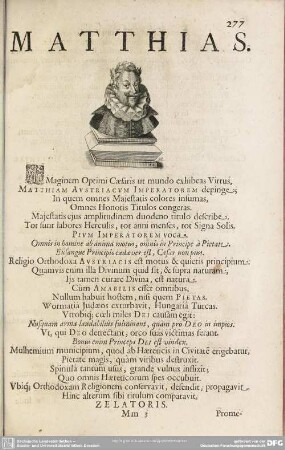 277
MATTHIAS.
IMaginem Optimi Cæsaris ut mundo exhibeas Virtus,
MATTHIAM AVSTRIACVM IMPERATOREM depinge,
In quem omnes Majestatis colores insumas,
Omnes Honoris Titulos congeras.
Majestatis ejus amplitudinem duodeno titulo describe,
Tot sunt labores Herculis, tot anni menses, tot Signa Solis.
PIVM IMPERATOREM voca,
Omnis in homine ab anima motus, omnis in Principe à Pietate,
Exsangue Principis cadaver est, Cæsar non pius.
Religio Orthodoxa AVSTRIACIS est motus & quietis principium,
Quamvis enim illa Divinum quid sit, & supra naturam,
Ijs tamen curare Divina, est natura.
Cùm AMABILIS esset omnibus,
Nullum habuit hostem, nisi quem PIETAS.
Wormatiâ Judæos exturbavit, Hungariâ Turcas.
Vtrobiq; cæli miles DEI causam egit:
Nusquam arma laudabiliùs fulminant, quàm pro DEO in impios.
Vt, qui DEO detrectant, orco suas victimas ferant.
Bonus enim Princeps DEI est vindex.
Mulhemium municipium, quod ab Hæreticis in Civitatē engebatur,
Pietate magis, quàm viribus destruxit.
Spinulâ tantùm usus, grande vulnus inflixit,
Quo omnis Hæreticorum spes occubuit.
Vbiq; Orthodoxam Religionem conservavit, defendit, propagavit,
Hinc alterum sibi titulum comparavit,
ZELATORIS.
Mm 3 Prome-